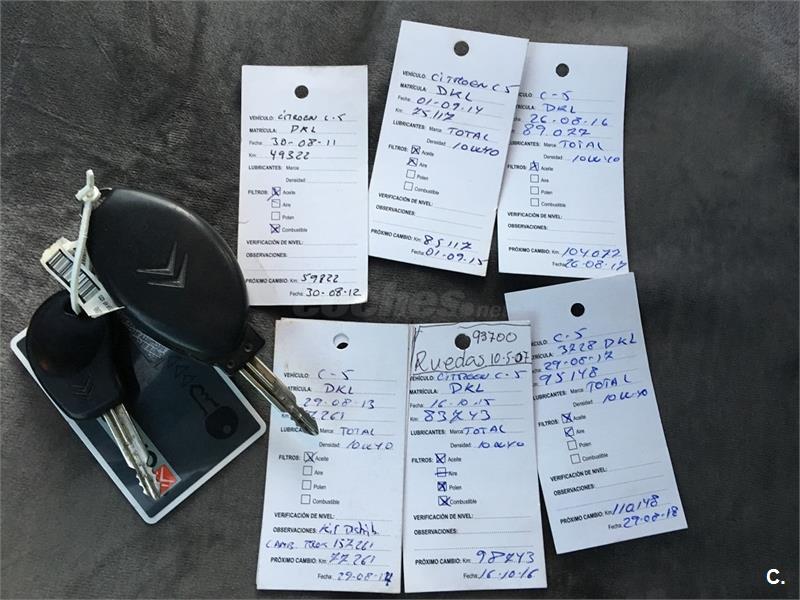 VEHÍCULO: CITROEN C-5
MATRÍCULA: DKL
Fecha: 30-08-11
Km: 49322
LUBRICANTES: Marca
Densidad:
FILTROS: Aceite
Aire
Polen
Combustible
VERIFICACIÓN DE NIVEL:
OBSERVACIONES:
PRÓXIMO CAMBIO: Km: 59822
Fecha: 30-08-12
VEHÍCULO: CITROEN C5
MATRÍCULA: DKL
Fecha: 01-09-14
Km: 75.117
LUBRICANTES: Marca TOTAL
Densidad: 10W40
FILTROS: Aceite
Aire
Polen
Combustible
VERIFICACIÓN DE NIVEL:
OBSERVACIONES:
PRÓXIMO CAMBIO: Km: 85117
Fecha: 01-09.15
C-5
DKL
26-08-16
89.077
Marca TOTAL
Densidad: 10W40
Aceite
Aire
Polen
Combustible
VERIFICACIÓN DE NIVEL:
OBSERVACIONES:
PRÓXIMO CAMBIO: Km: 104077
Fecha: 26-08-17
coches.net
VEHÍCULO: C-5
MATRÍCULA: DKL
29-08-13
LUBRICANTES: Marca TOTAL
Densidad: 10W40
FILTROS: Aceite
Aire
Polen
Combustible
VERIFICACIÓN DE NIVEL:
OBSERVACIONES: Kit Distrib
157261
PRÓXIMO CAMBIO: Km: 77261
Fecha: 29-08-14
93700
Ruedas 10-5-07
VEHÍCULO: CITROEN C-5
MATRÍCULA: DKL
Fecha: 16-10-15
Km: 83243
LUBRICANTES: Marca TOTAL
Densidad: 10W40
FILTROS: Aceite
Aire
Polen
Combustible
VERIFICACIÓN DE NIVEL:
OBSERVACIONES:
PRÓXIMO CAMBIO: Km: 98243
Fecha: 16-10-16
C-5
3228 DKL
29-08-17
95148
LUBRICANTES: Marca TOTAL
Densidad: 10W40
FILTROS: Aceite
Aire
Polen
Combustible
VERIFICACIÓN DE NIVEL:
OBSERVACIONES:
PRÓXIMO CAMBIO: Km: 110148
Fecha: 29-08-18
C.